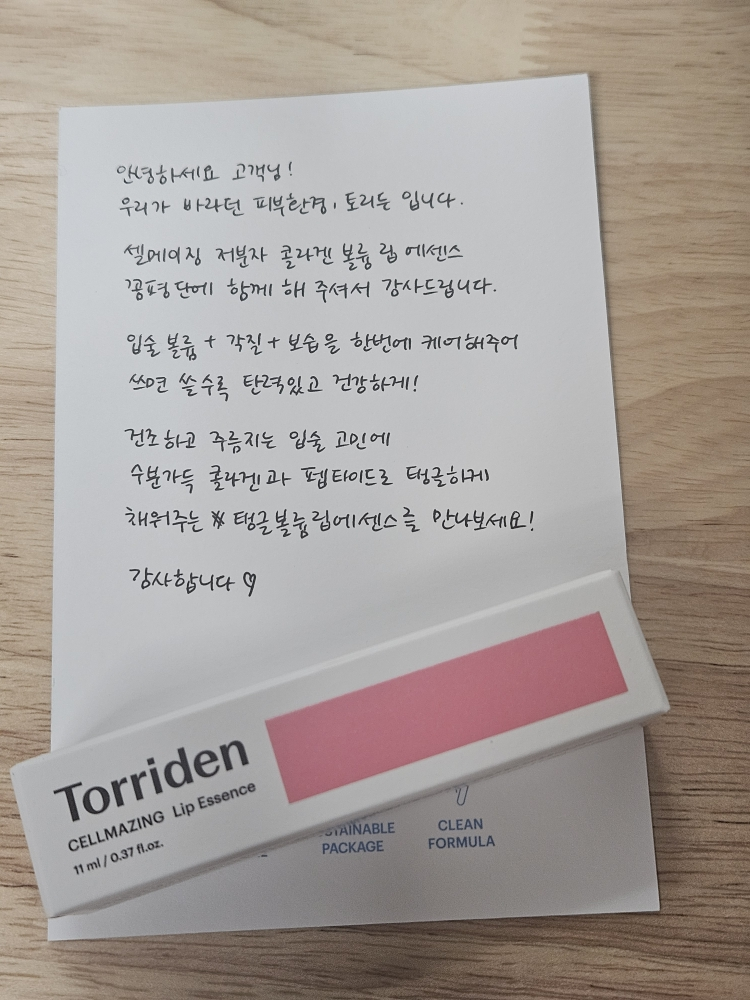 안녕하세요 고객님!
우리가 바라던 피부환경, 토리든 입니다.
셀메이징 저분자 콜라겐 볼륨 립 에센스
꽁평단에 함께 해 주셔서 감사드립니다.
입술 볼륨 + 각질 + 보습을 한번에 케어해주어
쓰면 쓸수록 탄력있고 건강하게!
건조하고 주름지는 입술 고민에
수분가득 콜라겐과 펩타이드로 탱글하게
채워주는 # 탱글볼륨립에센스를 만나보세요!
감사합니다♡
Torriden
CELLMAZING Lip Essence
11 ml / 0.37 fl.oz.
PACKAGE
CLEAN
FORMULA